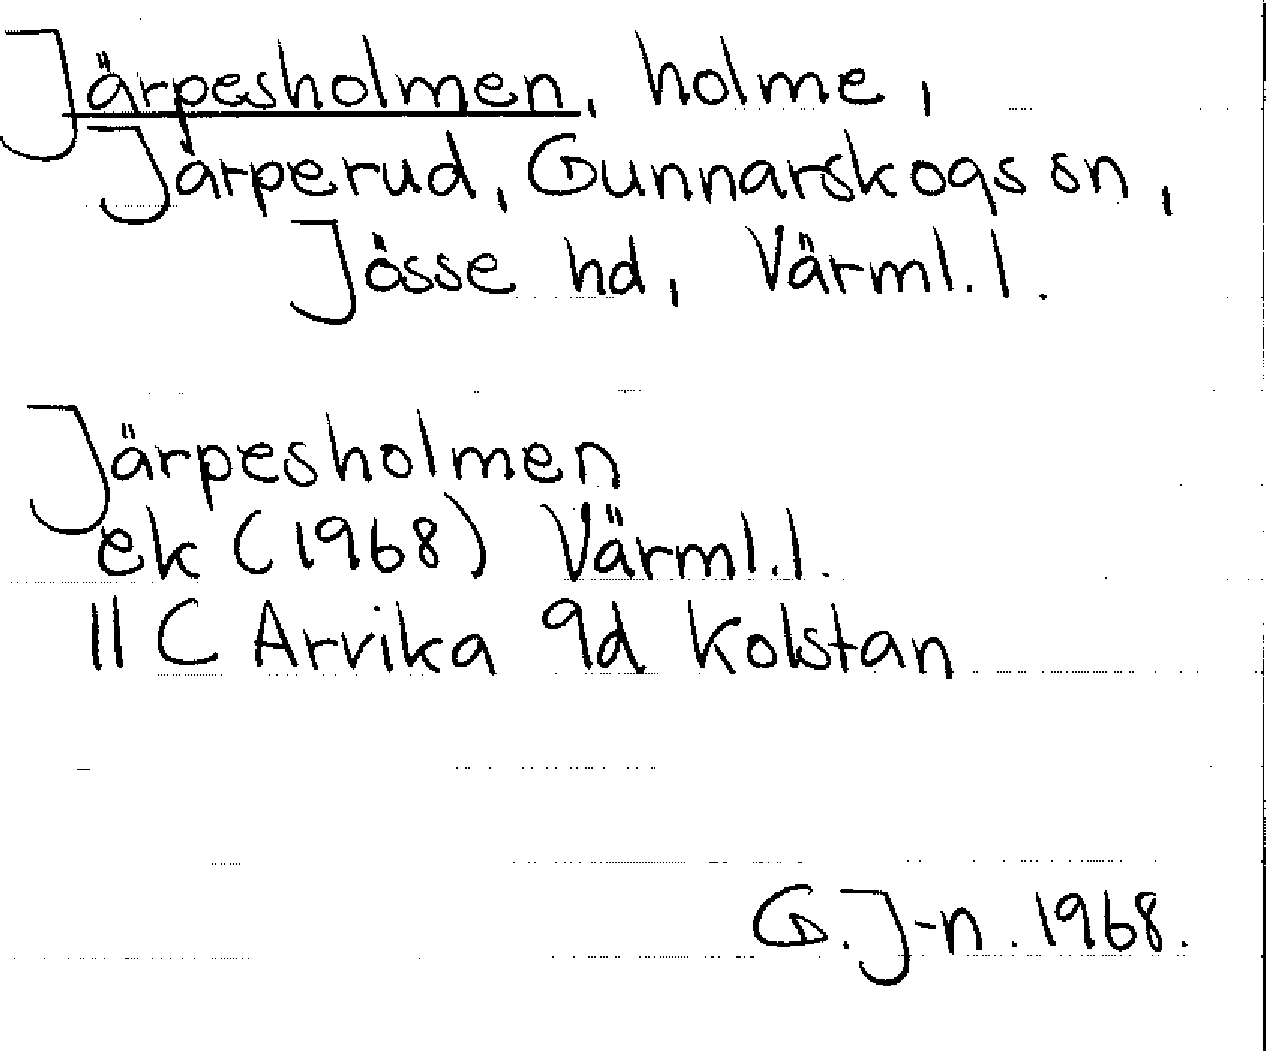 Järpesholmen, holme,
Järperud, Gunnarskogs sn,
Jösse hd, Värml. l.
Järpesholmen
ek (1968) Värml. l.
11 C Arvika 9d Kolstan
G. J-n. 1968.